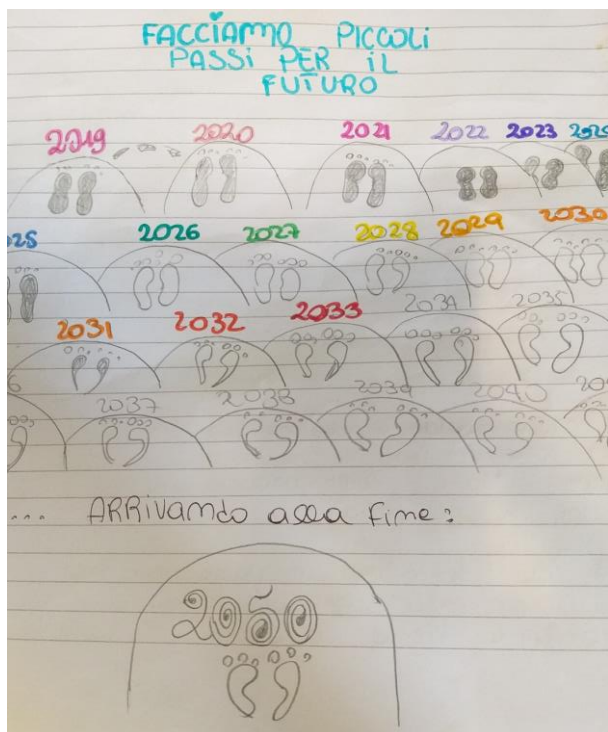 FACCIAMO PICCOLI
PASSI PER IL
FUTURO
2019 2020 2021 2022 2023
25 2026 2027 2028 2029 2030
2031 2032 2033 2034 2035
6 2037 2038 2039 2040
... ARRIVANDO alla fine:
2050